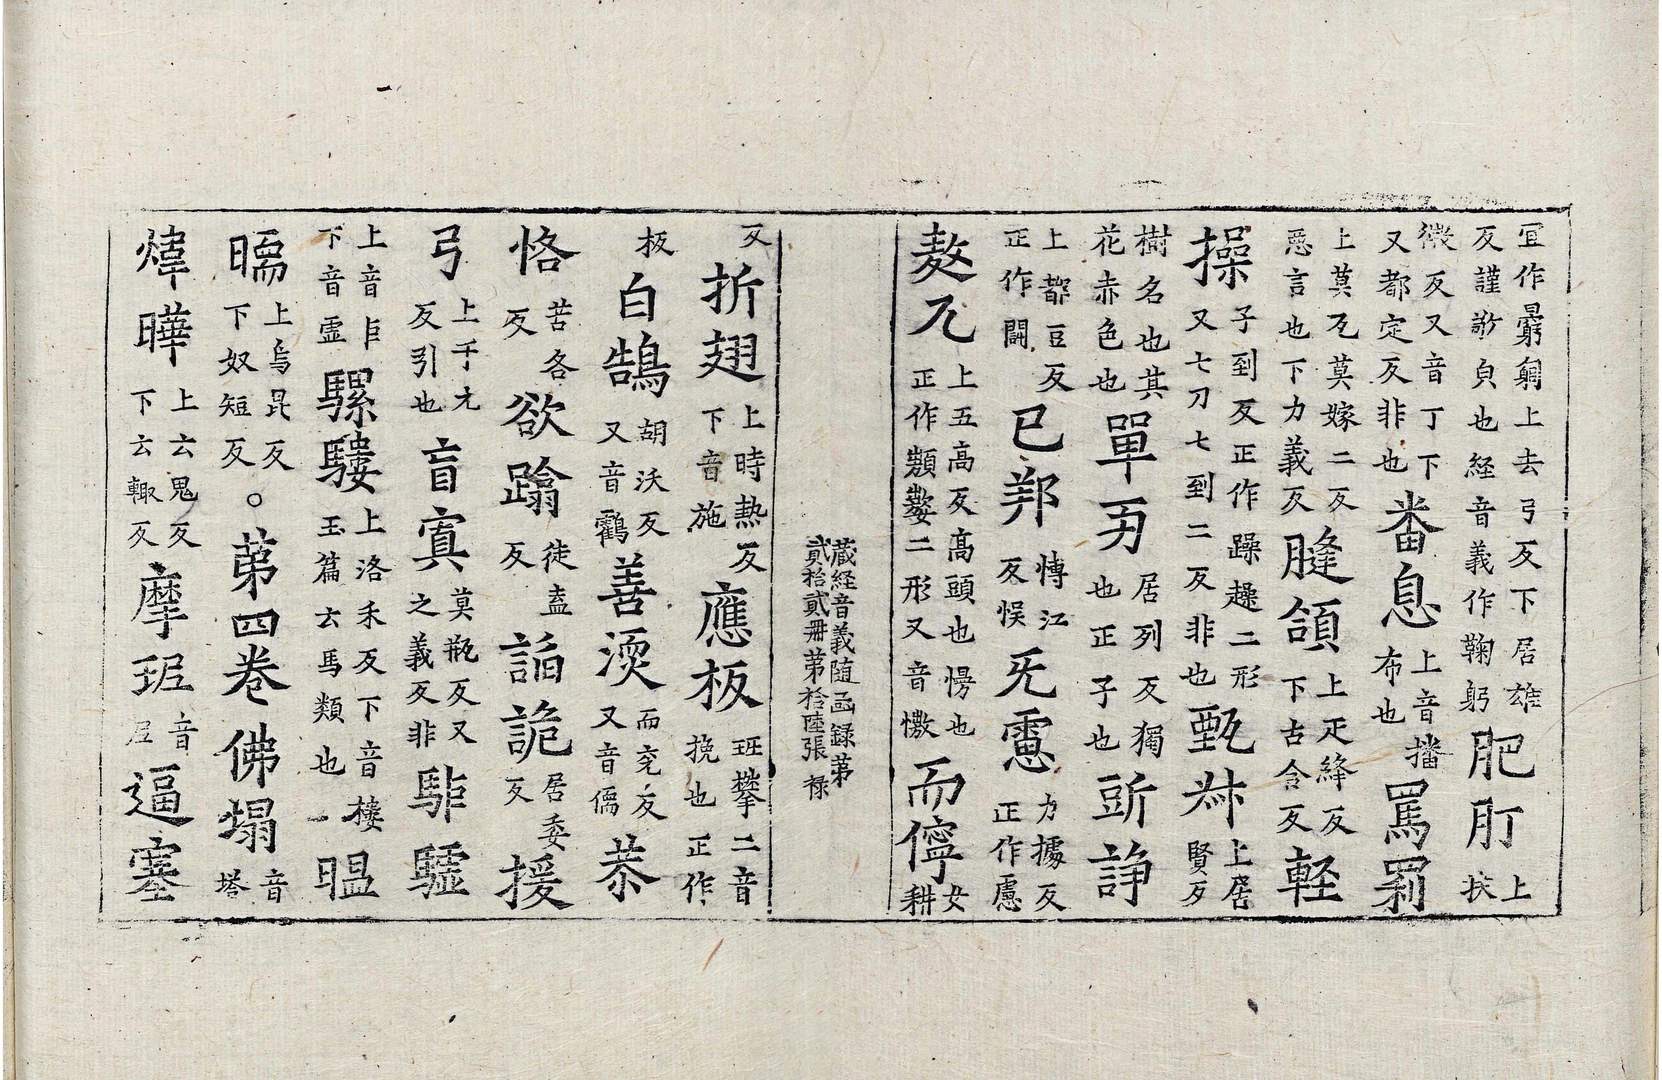 宜作𠣬躬上去弓反下居雄反謹敬皃也経音義作鞠躬肥肕上扶
微反又音丁下又都定反非也畨息上音播布也罵詈
上莫瓦莫嫁二反惡言也下力義反膖頷上疋絳反下古含反輕
操子到反正作躁趮二形又七刀七到二反非也甄叔上居賢反
樹名也其花赤色也單孑居列反獨也正子也訢諍
上都豆反正作鬪已邦愽江反悞旡慮力據反正作慮
敖兀上五高反高頭也慢也正作顤嫯二形又音憿而儜女耕
藏経音義随函録苐貳拾貳册苐拾陸張 禄
反折翅上時熱反下音施應板班攀二音挽也正作
板白鵠胡沃反又音鸖善渜而兖反又音儒恭
恪苦各反欲蹹徒盍反謟詭居委反援
弓上千尢反引也盲寘莫瓶反又之義反非馿驉
上音䶥下音霊騾䮫上洛禾反下音楼玉篇云馬類也一暍
㬉上烏昆反下奴短反。苐四卷佛塌音塔
煒曄上云鬼反下云輙反摩珎音𡰱逼塞